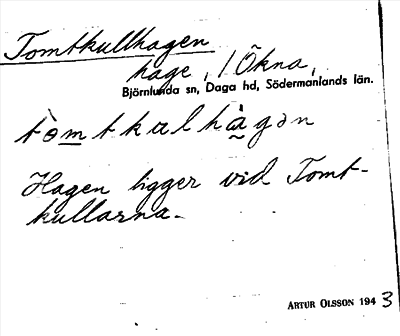 Tomtkullhagen
hage, i Ökna,
Björnlunda sn, Daga hd, Södermanlands län.
tòmtkulhàgən
Hagen ligger vid Tomt-
kullarna.
ARTUR OLSSON 1943